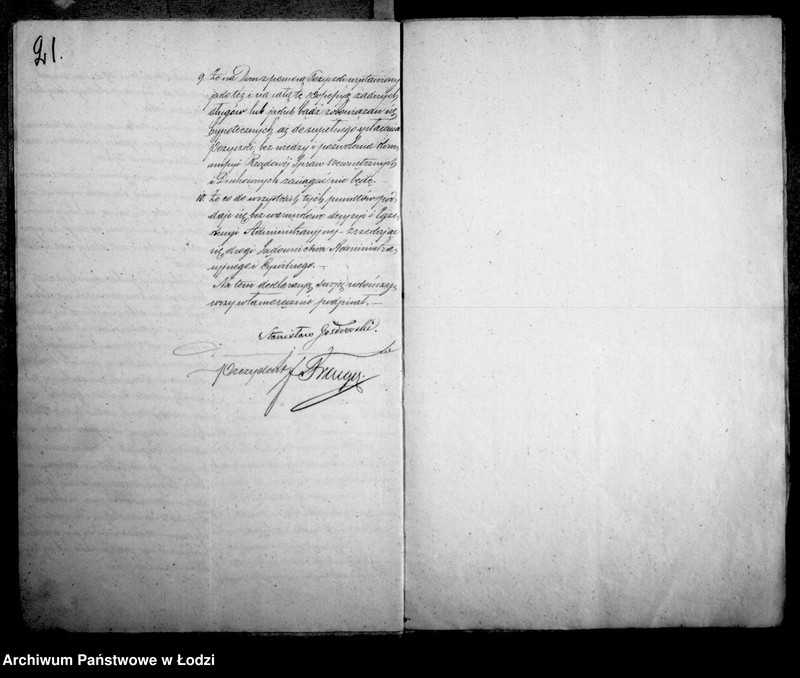 21.
9. Że na Dom z pomocą Pożyczki wystawiony
jako też i na całą tę Posesyą żadnych
długów lub jakich bądź zobowiązań się
hypotecznych aż do zupełnego spłacenia
Pożyczki, bez wiedzy i pozwolenia Kom-
missyi Rządowej Spraw Wewnętrznych
i Duchownych zaciągać nie będę.
10. Że co do wszystkich tych punktów pod-
daję się bez warunkowo decyzyi i Egze-
kucyi Administracyjnej – zrzekając
się drogi Sądownictwa Administra-
cyjnego i Cywilnego. –
Na tem deklaracyą swoją zakończy-
wszy własnoręcznie podpisał. –
Stanisław
Prezydent
Archiwum Państwowe w Łodzi